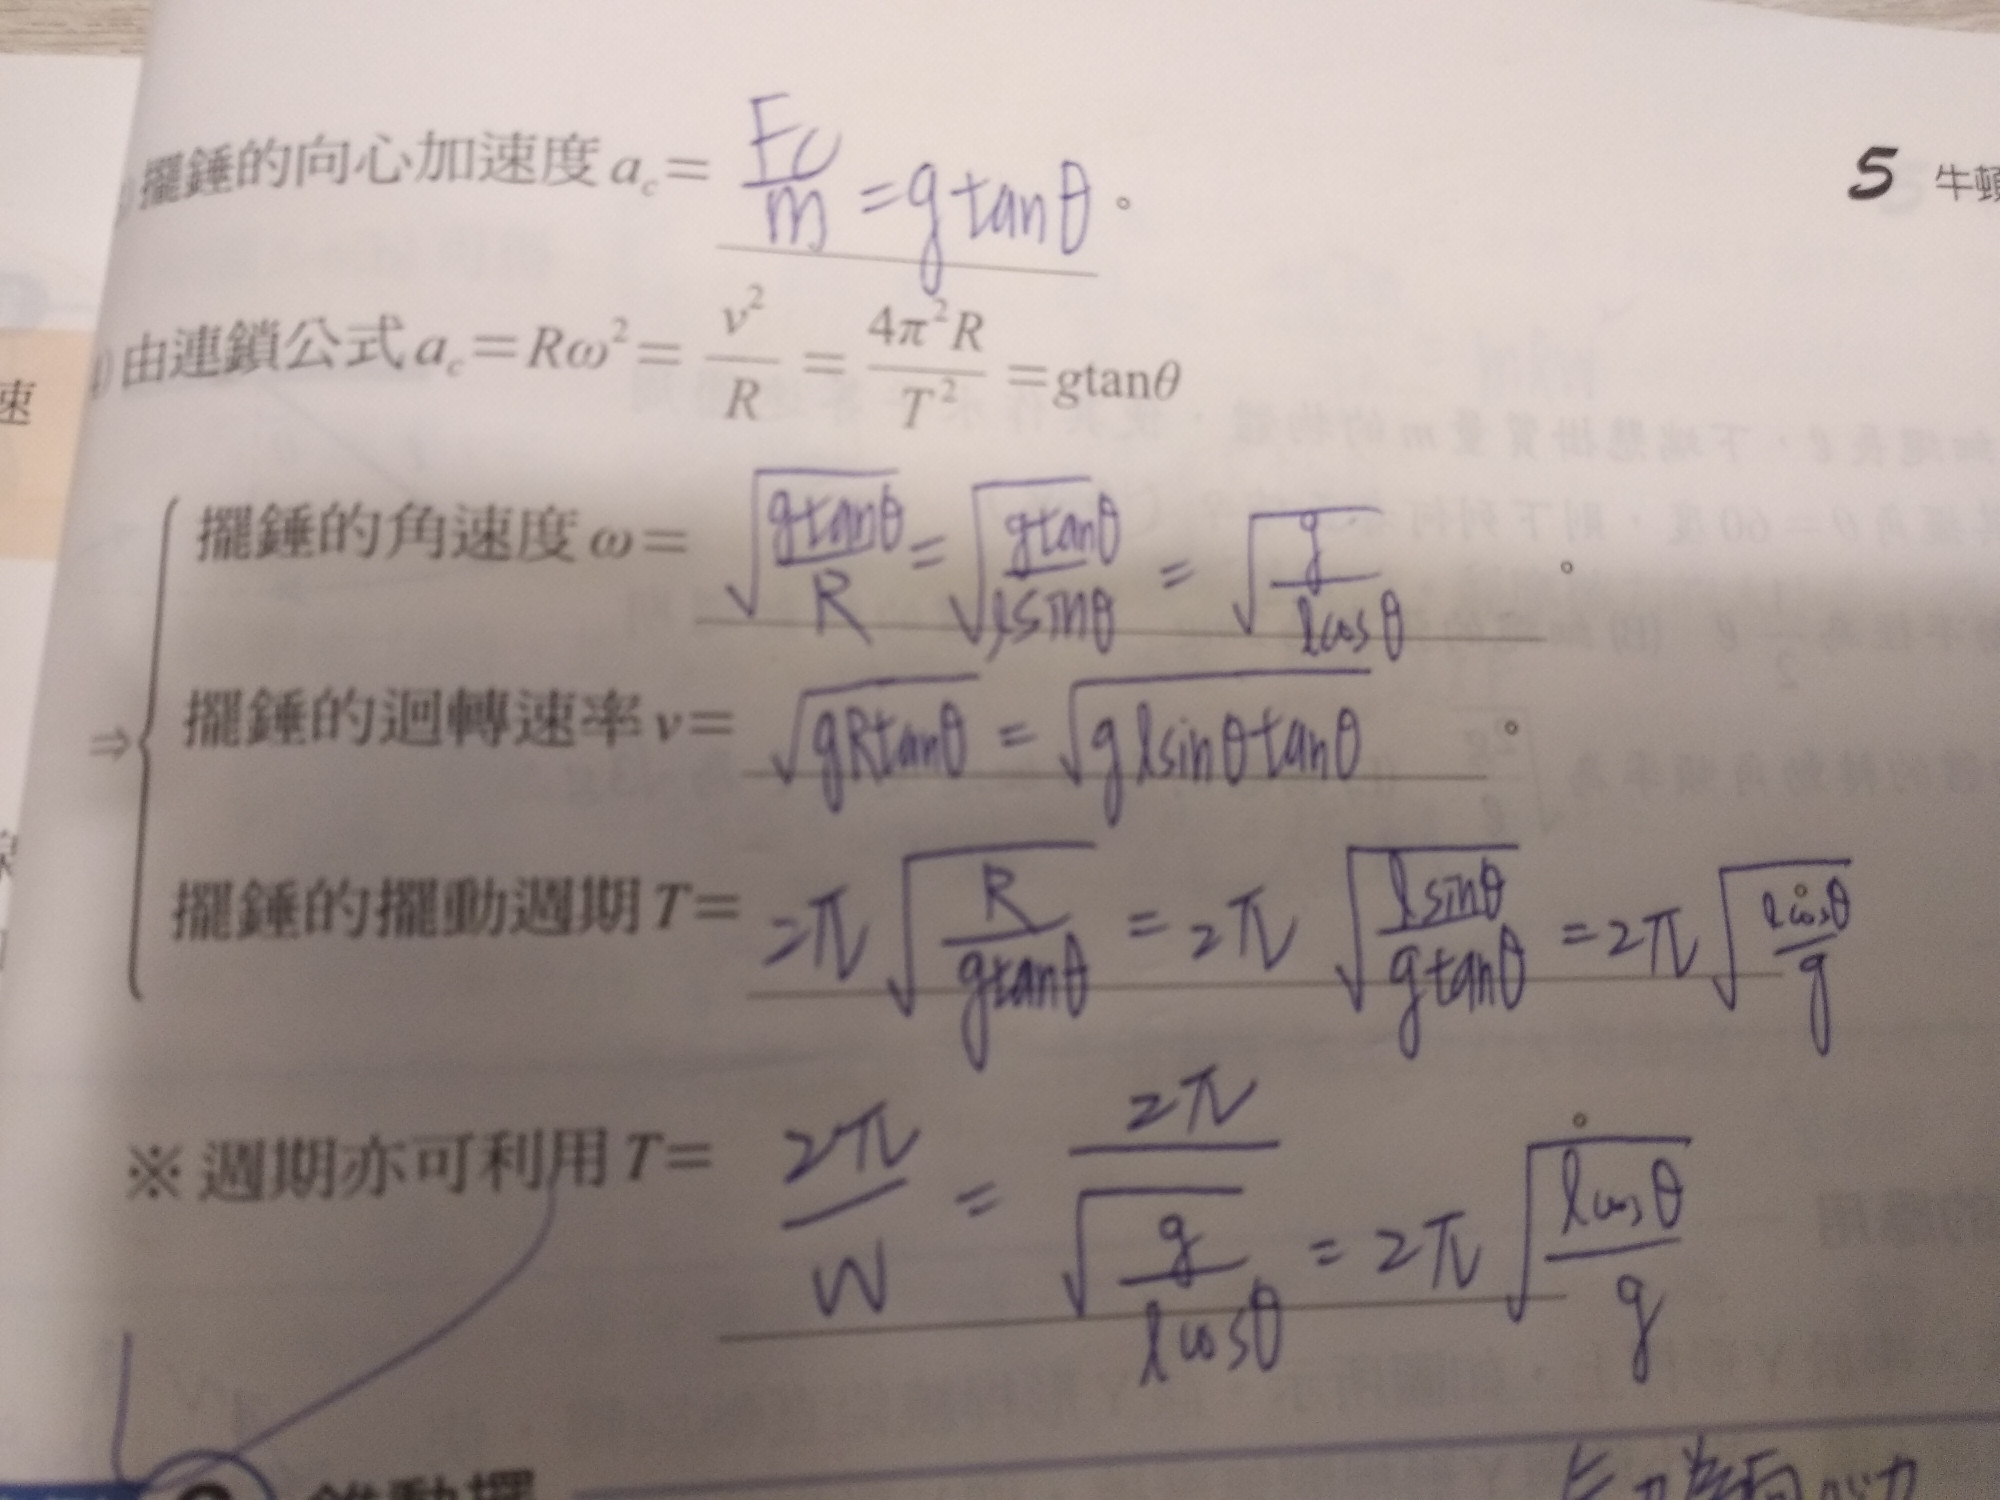 擺錘的向心加速度 a_c = Fc/m = g tanθ。
5 牛頓
由連鎖公式 a_c = Rω² = v²/R = 4π²R/T² = gtanθ
速
擺錘的角速度 ω = √(gtanθ/R) = √(gtanθ/ℓsinθ) = √(g/ℓcosθ)。
⇒ 擺錘的迴轉速率 v = √(gRtanθ) = √(gℓsinθtanθ)。
擺錘的擺動週期 T = 2π√(R/gtanθ) = 2π√(ℓsinθ/gtanθ) = 2π√(ℓcosθ/g)。
※ 週期亦可利用 T = 2π/W = 2π/√(g/ℓcosθ) = 2π√(ℓcosθ/g)。